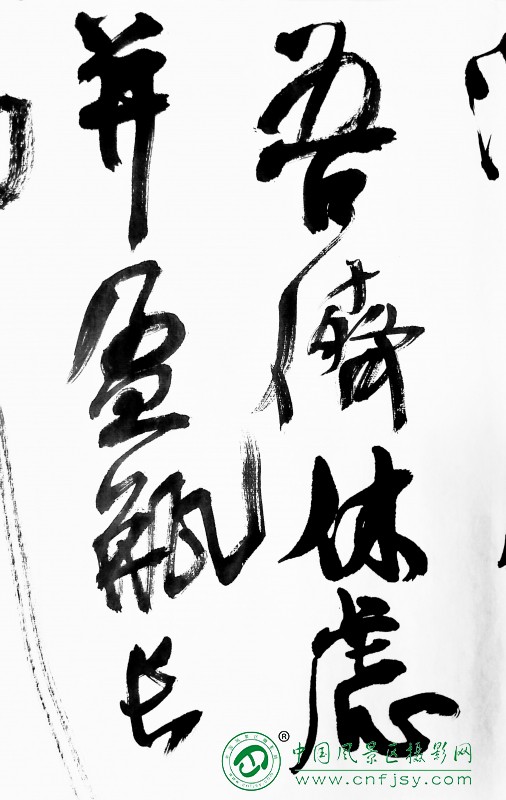 吾儕休慮
并盈瓶長
®
中国风景区摄影网
www.cnfjsy.com